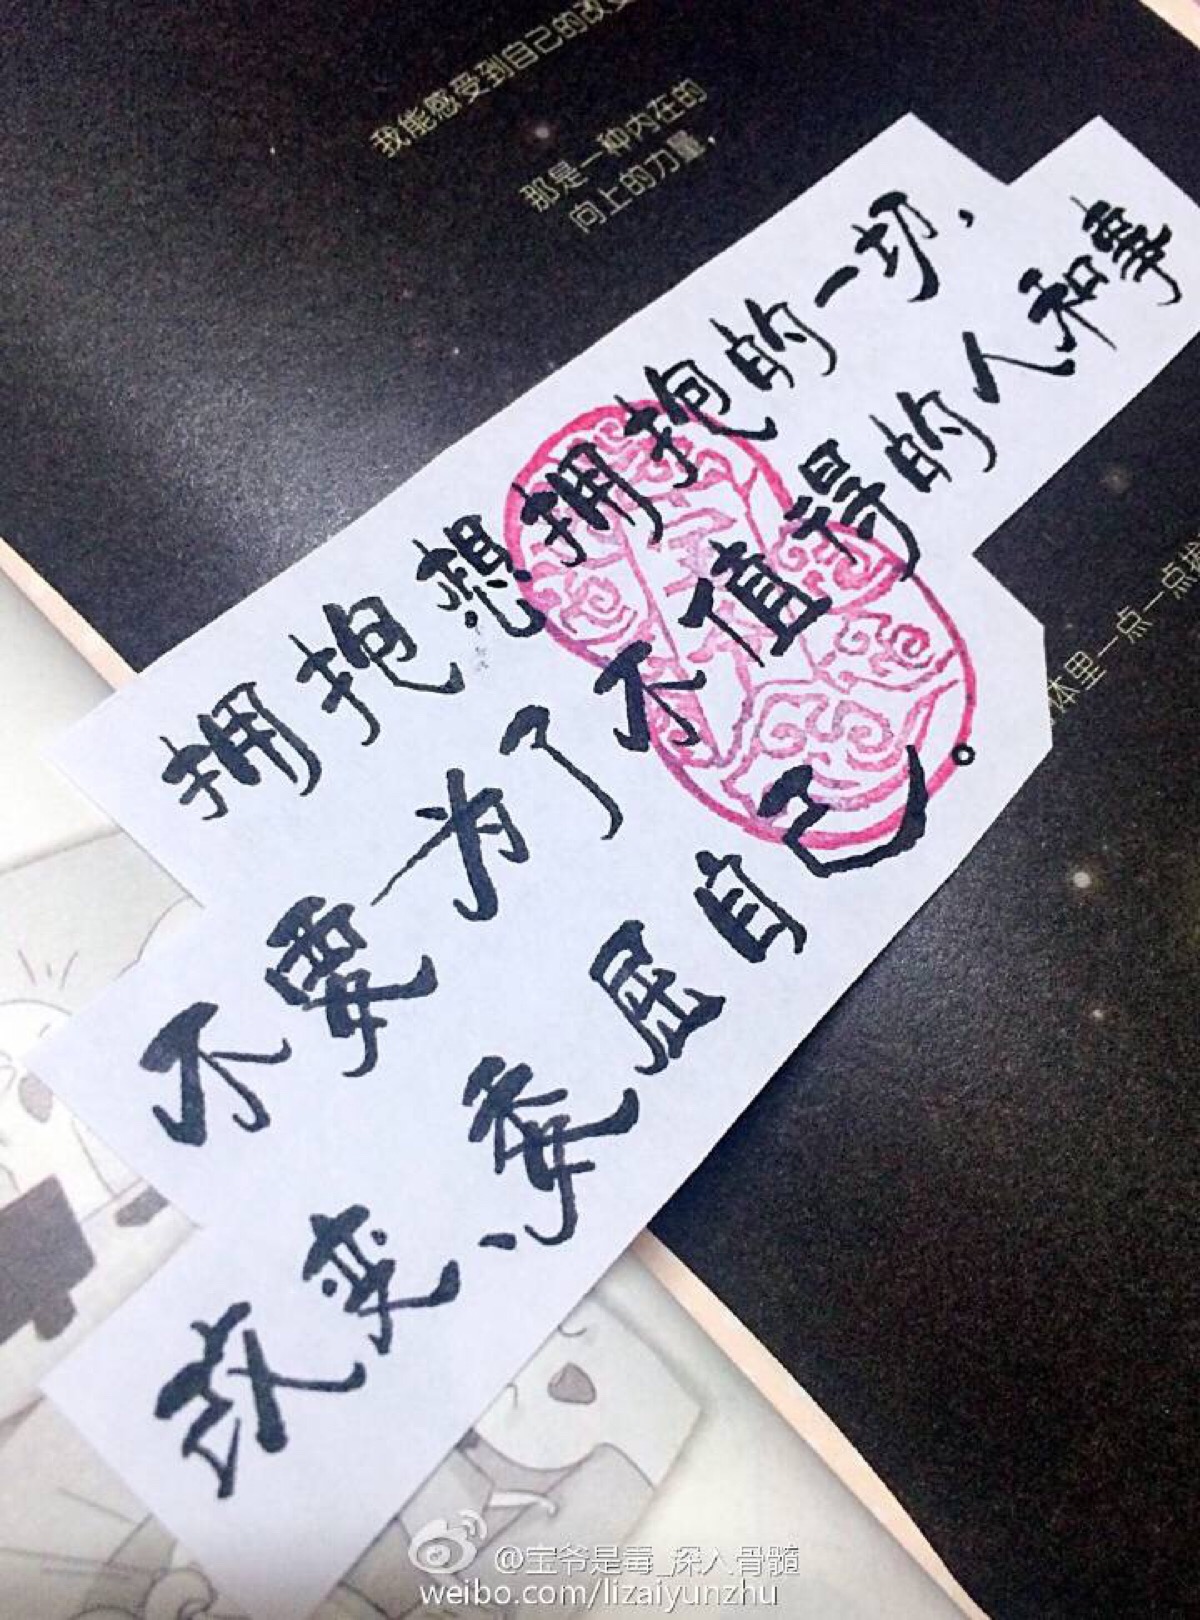 我能感受到自己的改变
那是一种内在的
向上的力量，
拥抱想拥抱的一切，
不要一为了不值得的人和事
改变、委屈自己。
体里一点一点
@宝爷是毒_深入骨髓
weibo.com/lizaiyunzhu